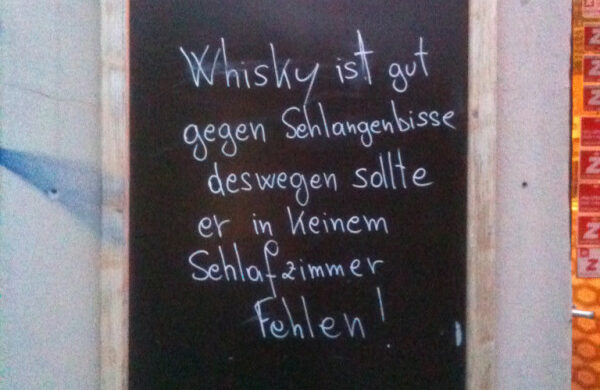 Whisky ist gut
gegen Schlangenbisse
deswegen sollte
er in Keinem
Schlafzimmer
Fehlen!